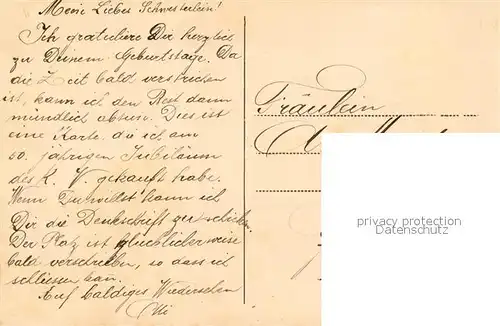 Meine Liebes Schwesterlein!
Ich gratuliere Dir herzlich
zu Deinem Geburtstage. Da
die Zeit bald verstrichen
ist, kann ich den Rest dann
mündlich abtun. Dies ist
eine Karte die ich am
50. jährigen Jubiläum
des K. V. gekauft habe.
Wenn Du willst kann ich
Dir die Denkschrift gerne schicken.
Der Platz ist glücklicherweise
bald verschrieben, so dass ich
schliessen kan.
Auf baldiges Wiedersehen
Fräulein
privacy protection